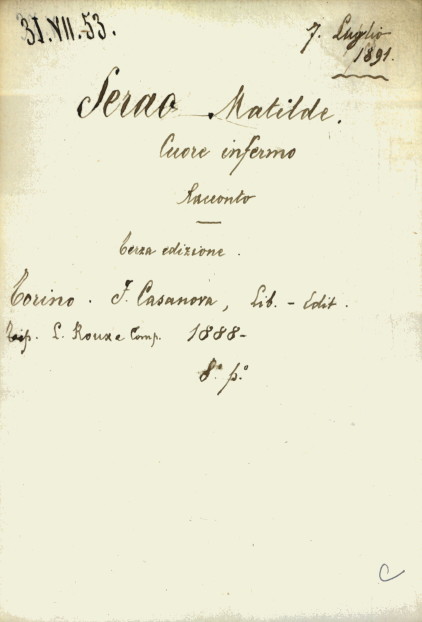 31.VII.53.
7. Luglio
1891.
Serao Matilde.
Cuore infermo
Racconto
terza edizione.
Torino. F. Casanova, Lib. - Edit.
Tip. L. Roux e Comp. 1888-
8.° p.°
C